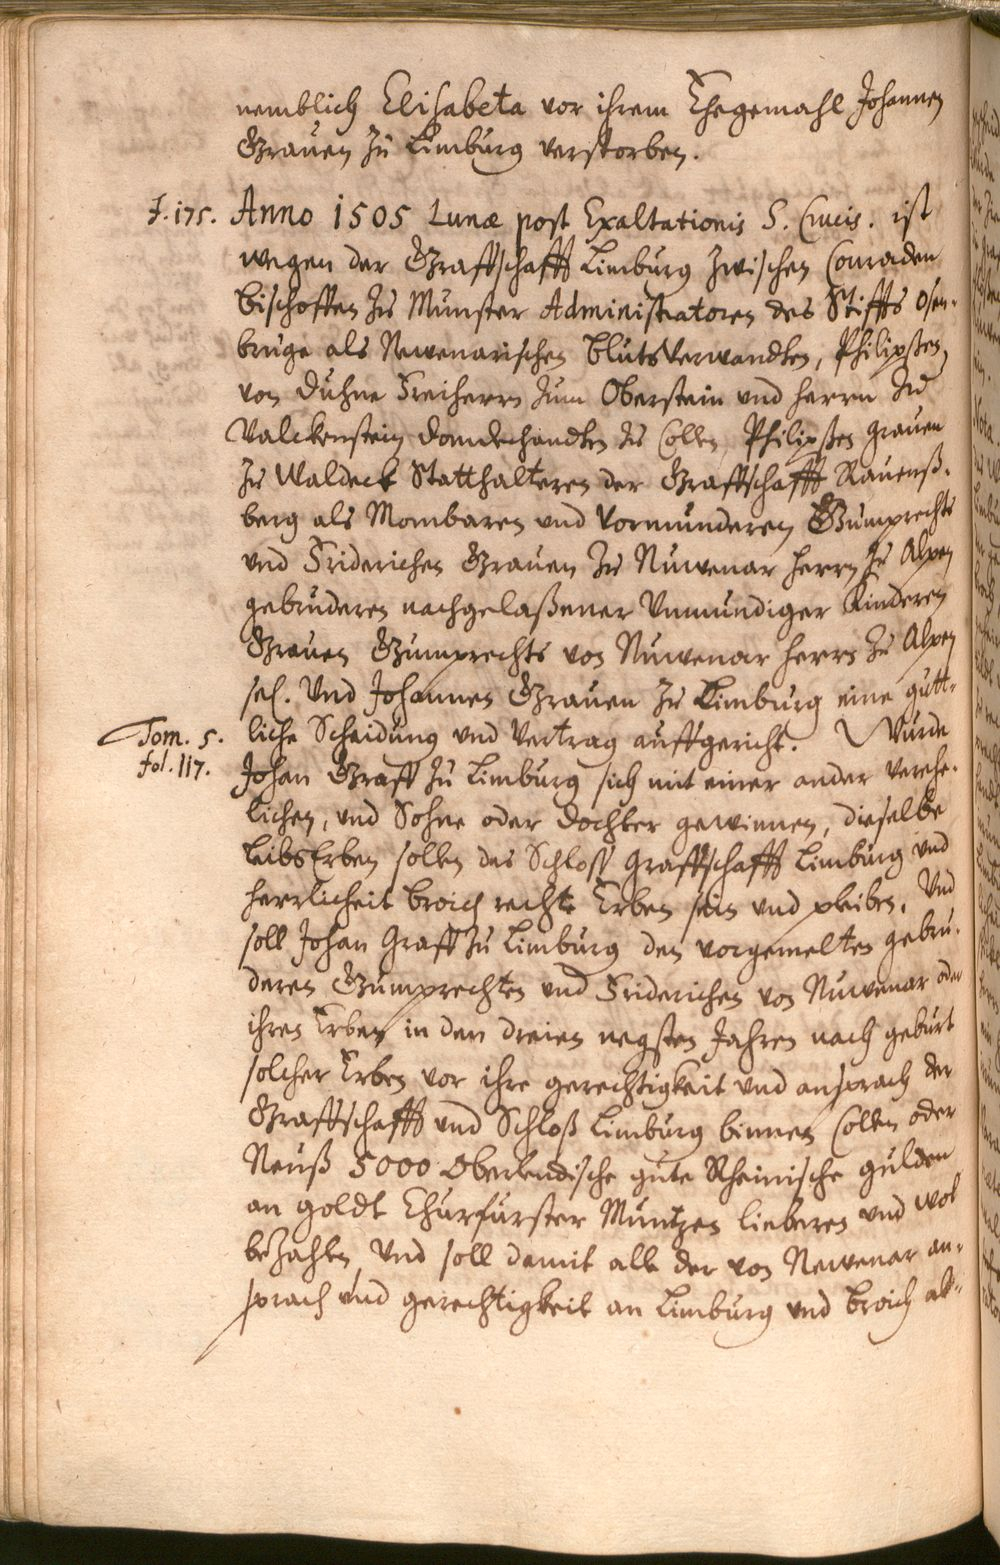 nemblich Elisabeta vor ihrem Ehegemahl Johannen
Grauen zu Limburg verstorben.
F. 175. Anno 1505 Lunæ post Exaltationis S. Crucis. ist
wegen der Graffschafft Limburg zwischen Conraden
Bischoffen zu Munster Administratoren des Stiffts Osen-
bruge als Newenarischen blutsverwandten, Philipsen
von Duhne Freiherrn zum Oberstein und herrn zu
Valckenstein Domdechandten zu Collen, Philipsen Grauen
zu Waldeck Statthalteren der Graffschafft Rauenß-
berg als Mombaren und Vormünderen Gumprechts
und Friderichen Grauen zu Nuwenar herrn zu Alpen
gebruderen nachgelaßener Unmundiger Kinderen
Grauen Gumprechts von Nuwenar herrn zu Alpen
sel. Und Johannen Grauen zu Limburg eine gutt-
liche Scheidung und Vertrag auffgericht. Wurde
Tom. 5.
fol. 117.
Johan Graff zu Limburg sich mit einer ander verehe-
lichen, und Sohne oder Dochter gewinnen, dieselbe
LeibsErben sollen des Schloß Graffschafft Limburg und
herrlicheit broich rechte Erben sein und pleiben. Und
soll Johan Graff zu Limburg den vorgemelten gebru-
deren Gumprechten und Friderichen von Nuwenar oder
ihren Erben in den dreien negsten Jahren nach geburt
solcher Erben vor ihre gerechtigkeit und ansprach der
Graffschafft und Schloß Limburg binnen Collen oder
Neuß 5000 Oberlendische gute Rheinische gulden
an goldt Churfurster Muntzen lieberen und wol
bezahlen, Und soll damit alle der von Newenar an-
sprach und gerechtigkeit an Limburg und broich ab-